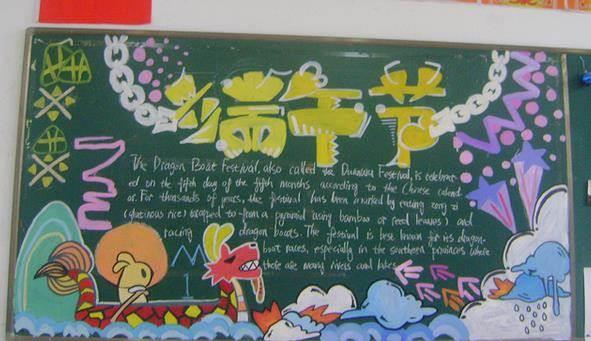 端午节
The Dragon Boat Festival, also called the Duanwu Festival, is celebrat-
ed on the fifth day of the fifth months according to the Chinese calend-
ar. For thousands of years, the festival has been marked by eating zong zi
(glutinous rice) wrapped to form a pyramid using bamboo or reed leaves) and
racing dragon boats. The festival is best known for its dragon-
boat races, especially in the southern provinces where
there are many rivers and lakes